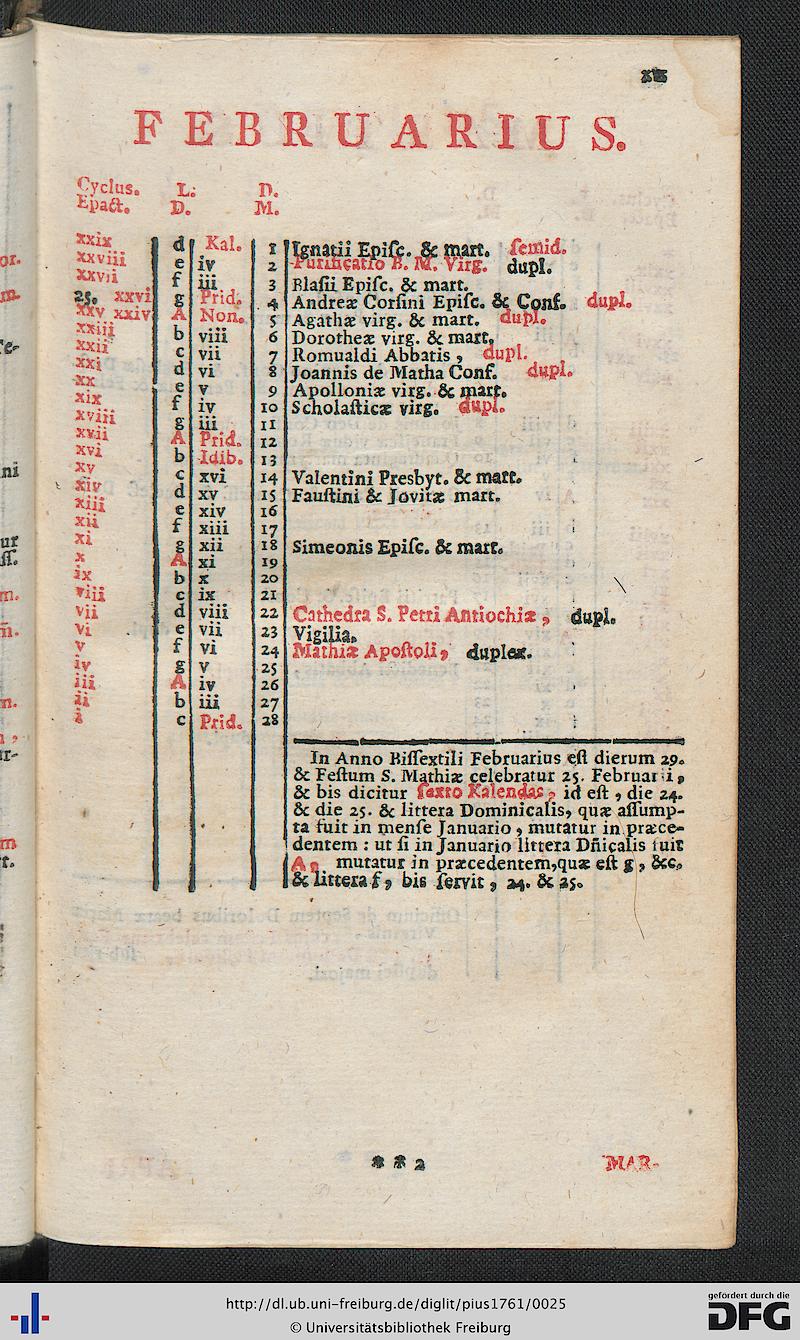 FEBRUARIUS.
Cyclus. L: D.
Epact. D. M.
xxix d Kal. 1 Ignatii Epiſc. & mart. ſemid.
xxviii e iv 2 Purificatio B. M. Virg. dupl.
xxvii f iii 3 Blaſii Epiſc. & mart.
25. xxvi g Prid. 4 Andreæ Corſini Epiſc. & Conf. dupl.
xxv xxiv A Non. 5 Agathæ virg. & mart. dupl.
xxiii b viii 6 Dorotheæ virg. & mart.
xxii c vii 7 Romualdi Abbatis, dupl.
xxi d vi 8 Joannis de Matha Conf. dupl.
xx e v 9 Apolloniæ virg. & mart.
xix f iv 10 Scholaſticæ virg. dupl.
xviii g iii 11
xvii A Prid. 12
xvi b Idib. 13
xv c xvi 14 Valentini Presbyt. & mart.
xiv d xv 15 Fauſtini & Jovitæ mart.
xiii e xiv 16
xii f xiii 17
xi g xii 18 Simeonis Epiſc. & mart.
x A xi 19
ix b x 20
viii c ix 21
vii d viii 22 Cathedra S. Petri Antiochiæ, dupl.
vi e vii 23 Vigilia.
v f vi 24 Mathiæ Apoſtoli, duplex.
iv g v 25
iii A iv 26
ii b iii 27
i c Prid. 28
In Anno Biſſextili Februarius eſt dierum 29.
& Feſtum S. Mathiæ celebratur 25. Februarii,
& bis dicitur ſexto Kalendas, id eſt, die 24.
& die 25. & littera Dominicalis, quæ aſſump-
ta fuit in menſe Januario, mutatur in præce-
dentem: ut ſi in Januario littera Dñicalis fuit
A, mutatur in præcedentem, quæ eſt g, &c.
& littera f, bis ſervit, 24. & 25.
** 2 MAR-
http://dl.ub.uni-freiburg.de/diglit/pius1761/0025
© Universitätsbibliothek Freiburg
gefördert durch die
DFG